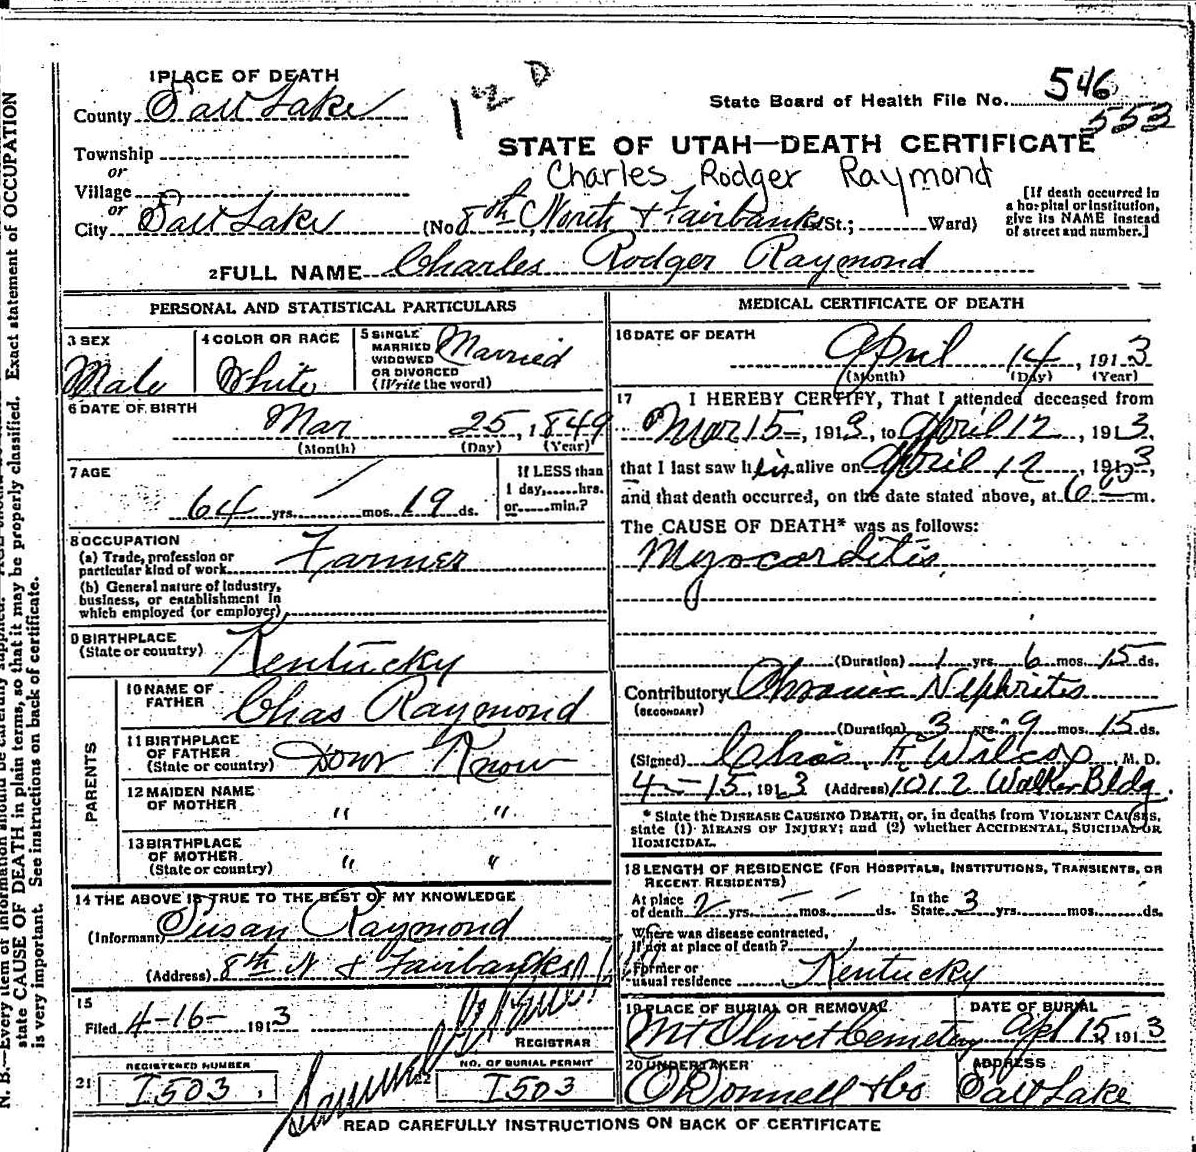 1 PLACE OF DEATH
County Salt Lake
Township
or
Village
or
City Salt Lake
1 2 D
State Board of Health File No. 546
553
STATE OF UTAH—DEATH CERTIFICATE
Charles Rodger Raymond
(No. 8th North & Fairbanks St.; Ward)
[If death occurred in a hospital or institution, give its NAME instead of street and number.]
2 FULL NAME Charles Rodger Raymond
PERSONAL AND STATISTICAL PARTICULARS
3 SEX
Male
4 COLOR OR RACE
White
5 SINGLE MARRIED WIDOWED OR DIVORCED (Write the word)
Married
6 DATE OF BIRTH
Mar 25, 1849
(Month) (Day) (Year)
7 AGE
64 yrs. / mos. 19 ds.
If LESS than
1 day,......hrs.
or......min.?
8 OCCUPATION
(a) Trade, profession or
particular kind of work Farmer
(b) General nature of Industry,
business, or establishment in
which employed (or employer)
9 BIRTHPLACE
(State or country) Kentucky
PARENTS
10 NAME OF
FATHER Chas Raymond
11 BIRTHPLACE
OF FATHER
(State or country) Dont Know
12 MAIDEN NAME
OF MOTHER " "
13 BIRTHPLACE
OF MOTHER
(State or country) " "
14 THE ABOVE IS TRUE TO THE BEST OF MY KNOWLEDGE
(Informant) Susan Raymond
(Address) 8th N & Fairbanks
15
Filed 4-16- 1913
REGISTRAR
21 REGISTERED NUMBER
I503
22 NO. OF BURIAL PERMIT
I503
MEDICAL CERTIFICATE OF DEATH
16 DATE OF DEATH
April 14, 1913
(Month) (Day) (Year)
17 I HEREBY CERTIFY, That I attended deceased from
Mar 15-, 1913, to April 12, 1913,
that I last saw him alive on April 12, 1913,
and that death occurred, on the date stated above, at 6 00 m.
The CAUSE OF DEATH* was as follows:
Myocarditis
(Duration) 1 yrs. 6 mos. 15 ds.
Contributory Chronic Nephritis
(SECONDARY)
(Duration) 3 yrs. 9 mos. 15 ds.
(Signed) Chas. F. Wilcox, M. D.
4-15, 1913 (Address) 1012 Walker Bldg.
* State the DISEASE CAUSING DEATH, or, in deaths from VIOLENT CAUSES,
state (1) MEANS OF INJURY; and (2) whether ACCIDENTAL, SUICIDAL OR
HOMICIDAL.
18 LENGTH OF RESIDENCE (FOR HOSPITALS, INSTITUTIONS, TRANSIENTS, OR
RECENT RESIDENTS)
At place of death 2 yrs. — mos. — ds. In the State 3 yrs. mos. ds.
Where was disease contracted,
if not at place of death?
Former or
usual residence Kentucky
19 PLACE OF BURIAL OR REMOVAL
Mt Olivet Cemetery
DATE OF BURIAL
Apl 15, 1913
20 UNDERTAKER
O'Donnell & Co
ADDRESS
Salt Lake
READ CAREFULLY INSTRUCTIONS ON BACK OF CERTIFICATE
N. B.—Every item of information should be carefully supplied.
state CAUSE OF DEATH in plain terms, so that it may be properly classified. Exact statement of OCCUPATION
is very important. See instructions on back of certificate.